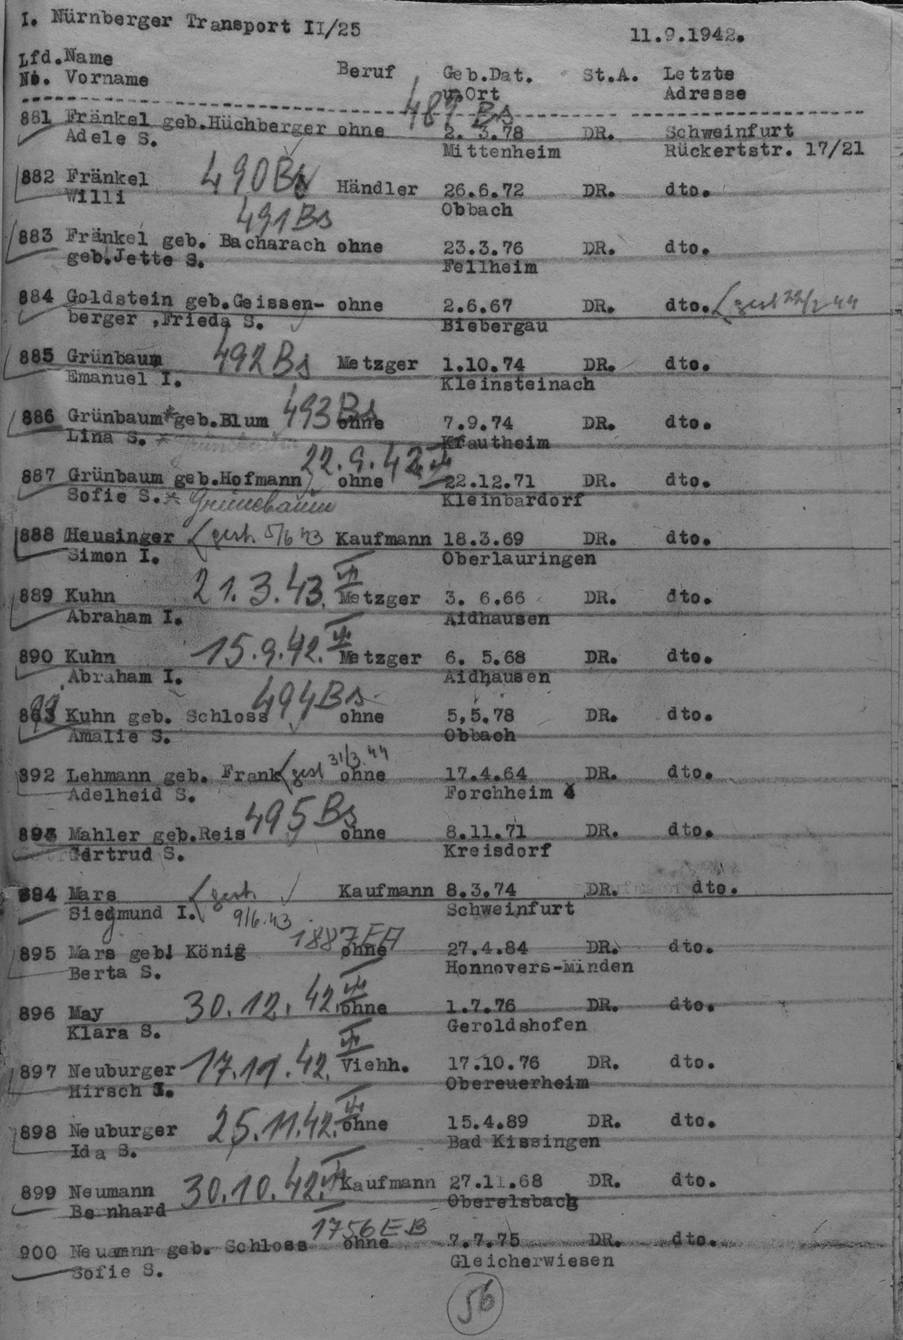 I. Nürnberger Transport II/25 11.9.1942.
Lfd. Name Beruf Geb.Dat. St.A. Letzte
No. Vorname u.Ort Adresse
489 Bs
881 Fränkel geb.Hüchberger ohne 2. 3.78 DR. Schweinfurt
Adele S. Mittenheim Rückertstr. 17/21
882 Fränkel 490 Bs Händler 26.6.72 DR. dto.
Willi Obbach
491 Bs
883 Fränkel geb. Bacharach ohne 23.3.76 DR. dto.
geb.Jette S. Fellheim
884 Goldstein geb.Geissen- ohne 2.6.67 DR. dto. gest 22/2 44
berger ,Frieda S. Biebergau
885 Grünbaum 492 Bs Metzger 1.10.74 DR. dto.
Emanuel I. Kleinsteinach
886 Grünbaum*geb.Blum 493 Bs ohne 7.9.74 DR. dto.
Lina S. * Krautheim
22.9.42
887 Grünbaum geb.Hofmann ohne 22.12.71 DR. dto.
Sofie S. * Grünebaum Kleinbardorf
888 Heusinger gest. 5/6 43 Kaufmann 18.3.69 DR. dto.
Simon I. Oberlauringen
889 Kuhn 21.3.43. Metzger 3. 6.66 DR. dto.
Abraham I. Aidhausen
890 Kuhn 15.9.42. Metzger 6. 5.68 DR. dto.
Abraham I. Aidhausen
494 Bs
Kuhn geb. Schloss ohne 5,5.78 DR. dto.
Amalie S. Obbach
892 Lehmann geb. Frank gest 31/3.44 ohne 17.4.64 DR. dto.
Adelheid S. Forchheim
893 Mahler geb.Reis 495 Bs ohne 8.11.71 DR. dto.
Gertrud S. Kreisdorf
894 Mars gest. Kaufmann 8.3.74 DR. dto.
Siegmund I. 9/6.43 Schweinfurt
1887 EA
895 Mars geb. König ohne 27.4.84 DR. dto.
Berta S. Honnovers-Minden
896 May 30.12.42. ohne 1.7.76 DR. dto.
Klara S. Geroldshofen
897 Neuburger 17.11.42. Viehh. 17.10.76 DR. dto.
Hirsch I. Obereuerheim
898 Neuburger 25.11.42. ohne 15.4.89 DR. dto.
Ida S. Bad Kissingen
899 Neumann 30.10.42. Kaufmann 27.11.68 DR. dto.
Bernhard Oberelsbach
1756 EB
900 Neumann geb. Schloss ohne 7.7.75 DR. dto.
Sofie S. Gleicherwiesen
56